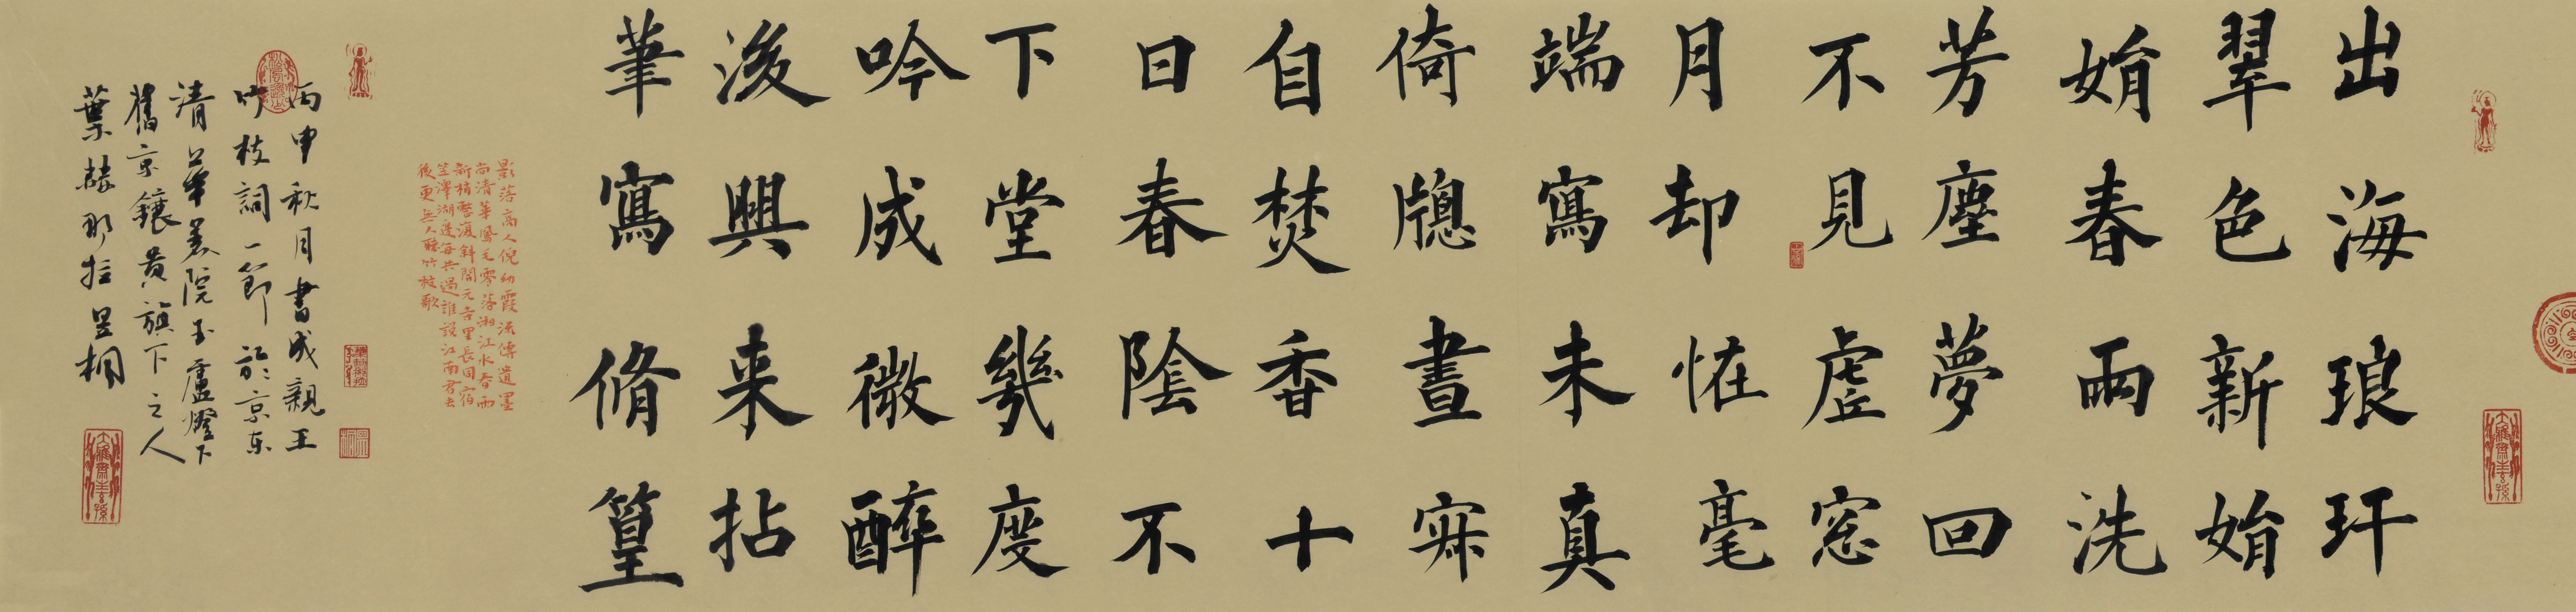 出海琅玕
翠色新娟
娟春雨洗
芳塵夢回
不見虛窓
月却恠毫
端寫未真
倚牕晝寐
自焚香十
日春陰不
下堂幾度
吟成微醉
後興来拈
筆寫脩篁
影落高人倪幼霞流傳遺墨
尚清華鳳毛零落湘江水春雨
新梢斜開元寺里長同宿
笠澤湖邊每共過誰設江南君去
後更無人聽竹枝歌
丙申秋月書成親王
竹枝詞一節於京东
清華美院玉廬燈下
舊京鑲黃旗下之人
葉赫那拉昱桐